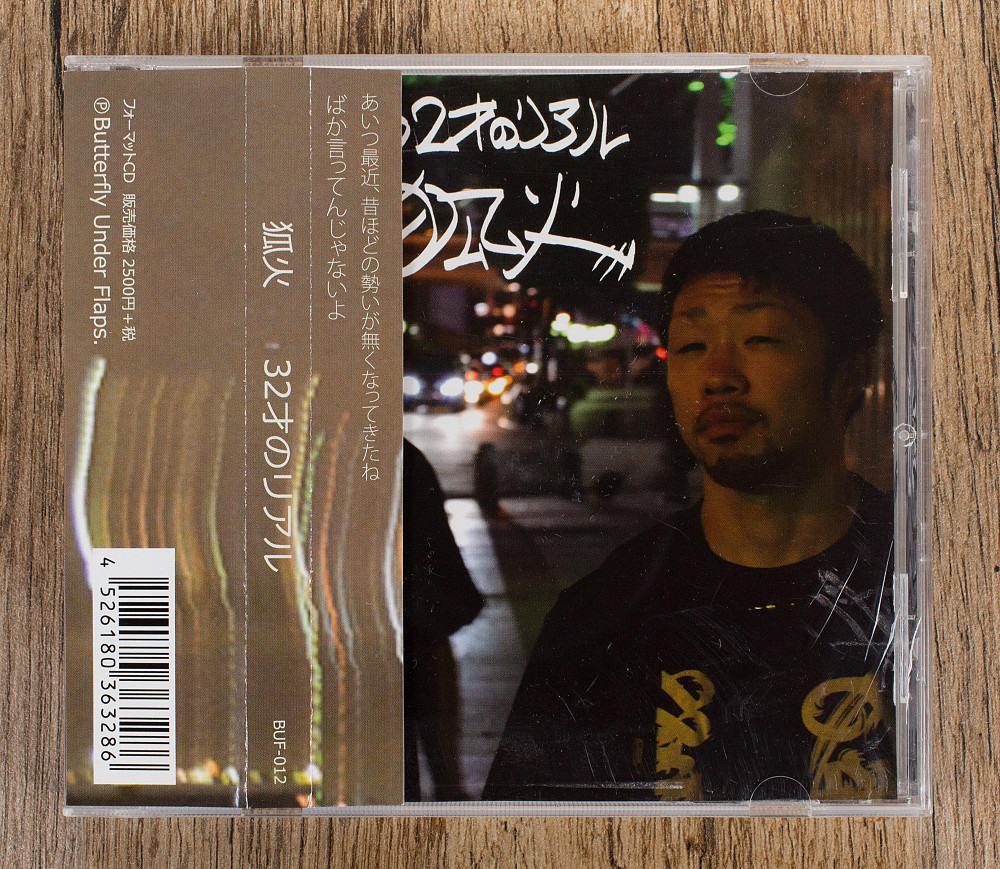 フォーマットCD 販売価格 2500円+税
ⓅButterfly Under Flaps.
4 526180 363286
狐火 32才のリアル
BUF-012
あいつ最近、昔ほどの勢いが無くなってきたね
ばか言ってんじゃないよ
32才のリアル
狐火